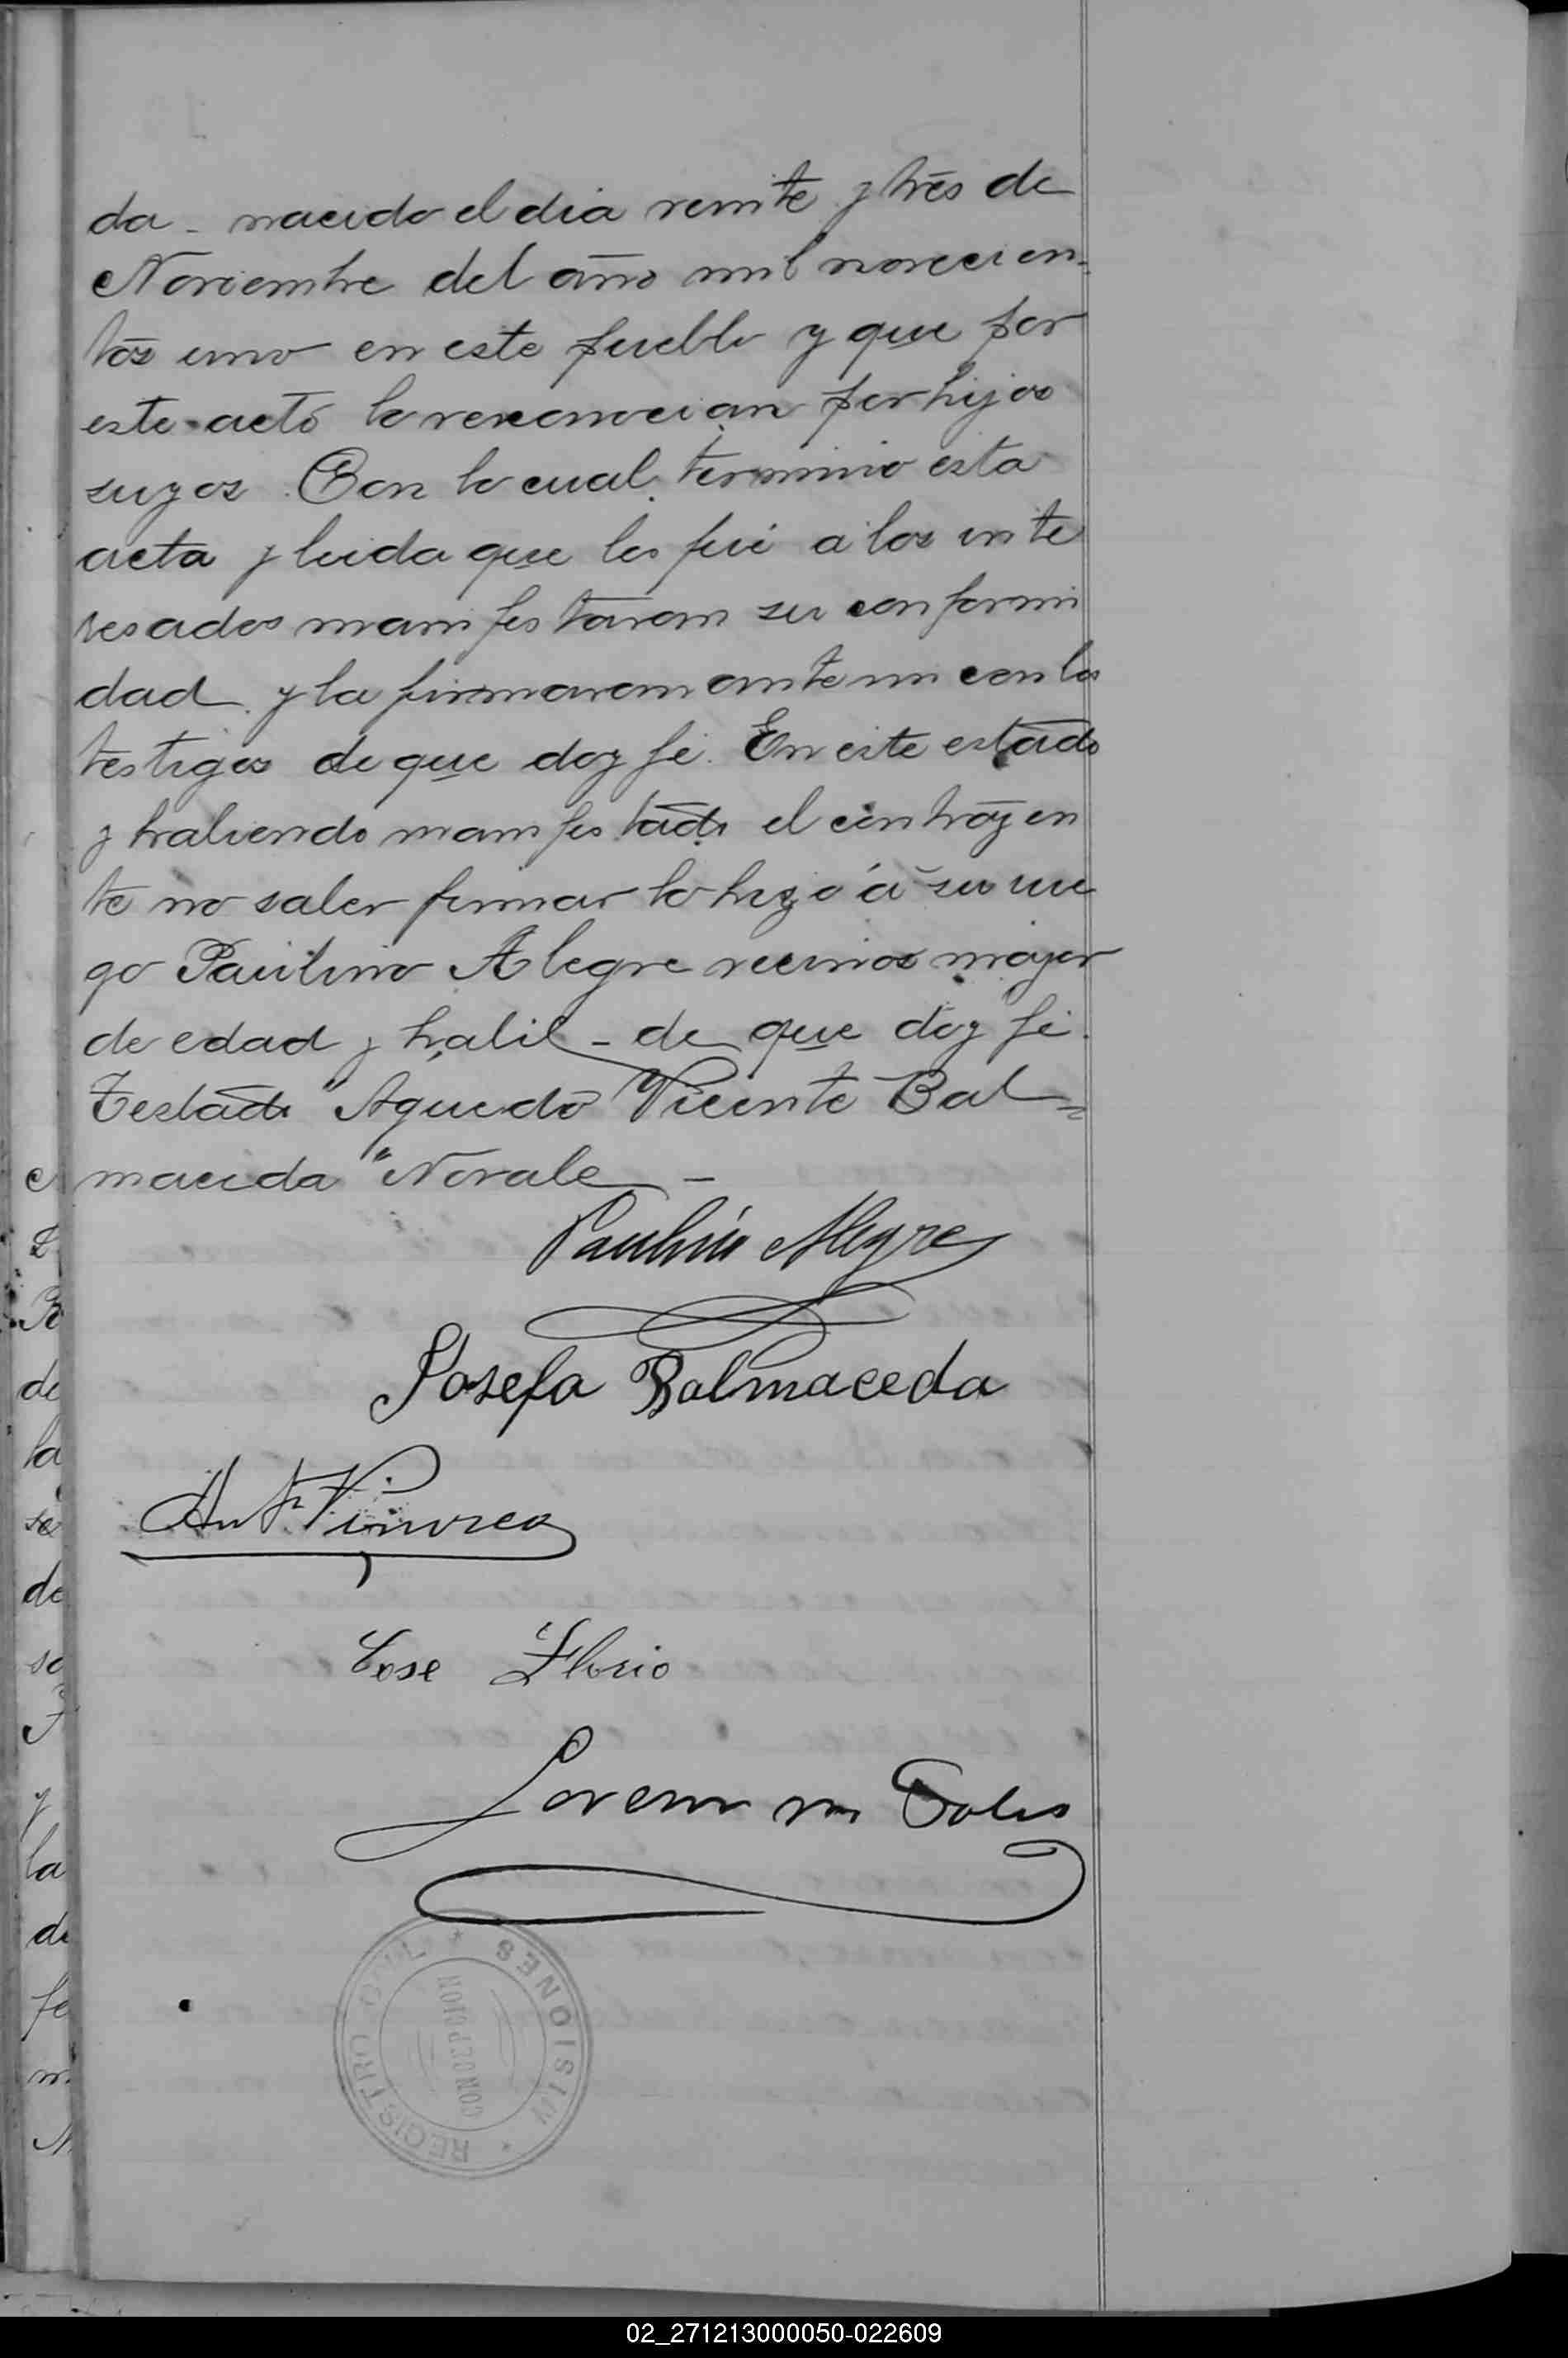 da - nacido el dia veinte y trés de
Noviembre del año mil novecien-
tos uno en este pueblo y que por
este acto lo reconocian por hijos
suyos. Con lo cual termino esta
acta y leida que les fué a los inte
resados manifestaron su conformi
dad y la firmaron ante mi con los
testigos de que doy fé. En este estado
y habiendo manifestado el contrayen
te no saber firmar lo hizo á su rue
go Paulino Alegre vecinos mayor
de edad y habil - de que doy fé.
Testado "Aguedo Vicente Bal=
maceda" No vale -
Paulino Alegre
Josefa Balmaceda
Jose Florio
REGISTRO CIVIL * MISIONES *
CONCEPCION
c
de
la
se
de
so
y
la
de
fe
m
02_271213000050-022609